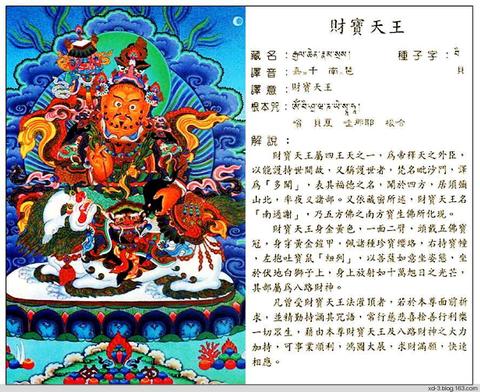 財寶天王
藏名：རྒྱལ་ཆེན་རྣམ་སྲས།
種子字：བཻ
譯音：
千 南 色
貝
譯意：財寶天王
根本咒：
嗡 貝夏 哇那耶 梭哈
解說：
財寶天王屬四王天之一，為帝釋天之外臣，
以能護持世間故，又稱護世者，梵名毗沙門，譯
為「多聞」，表其福德之名，聞於四方，居須彌
山北，半夜叉諸部。又依藏密所述，財寶天王名
「南通謝」，乃五方佛之南方寶生佛所化現。
財寶天王身金黃色，一面二臂，頭戴五佛寶
冠，身穿黃金鎧甲，佩諸種珍寶瓔珞，右持寶幢
，左抱吐寶鼠「紐列」，以菩薩如意坐姿態，坐
於伏地白獅子上，身上放射如十萬旭日之光芒，
其部屬為八路財神。
凡曾受財寶天王法灌頂者，若於本尊面前祈
求，並精勤持誦其咒語，常行慈悲喜捨善行利樂
一切眾生，藉由本尊財寶天王及八路財神之大力
加持，可事業順利，鴻圖大展，求財滿願，快速
相應。
xd-3.blog.163.com